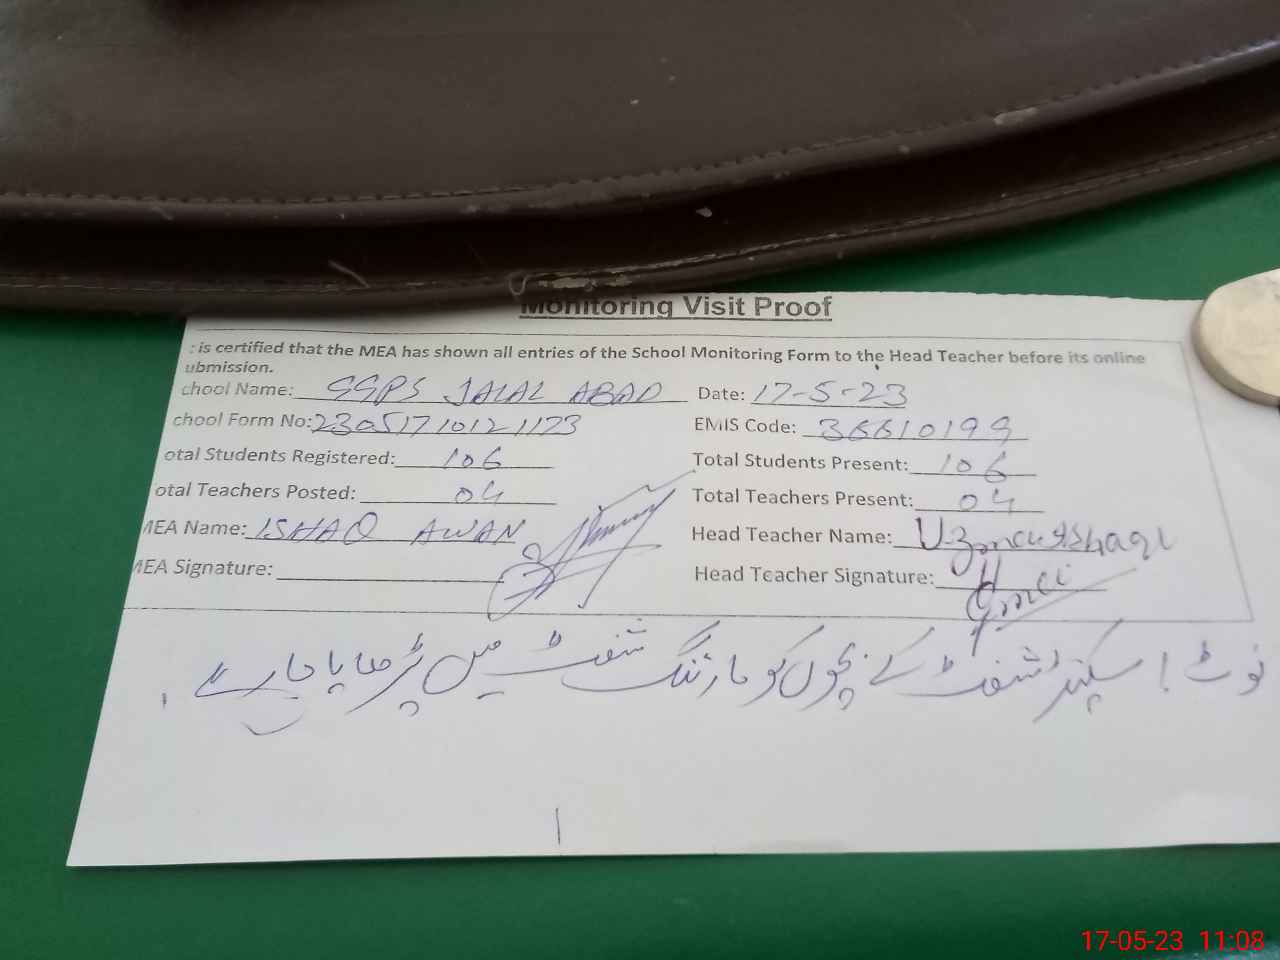 Monitoring Visit Proof
: is certified that the MEA has shown all entries of the School Monitoring Form to the Head Teacher before its online
ubmission.
chool Name: GGPS JALAL ABAD Date: 17-5-23
chool Form No: 230517101211123 EMIS Code: 36610199
otal Students Registered: 106 Total Students Present: 106
otal Teachers Posted: 04 Total Teachers Present: 04
MEA Name: ISHAQ AWAN Head Teacher Name: Uzma Ishaq
MEA Signature: Head Teacher Signature: Uzma
نوٹ! سیکنڈ شفٹ کے بچوں کو مارننگ شفٹ میں پڑھایا جا رہا ہے
17-05-23 11:08